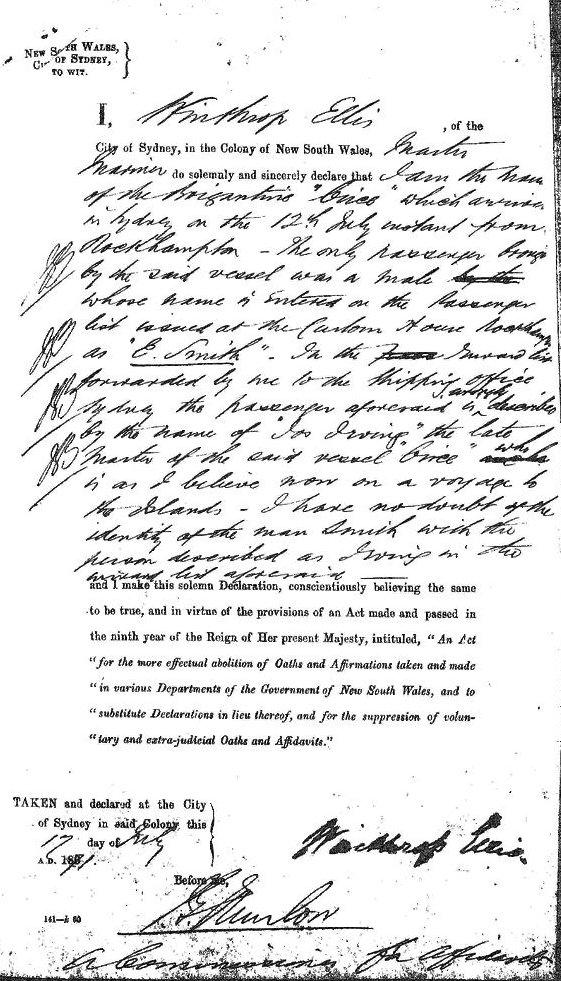 NEW SOUTH WALES,
CITY OF SYDNEY,
TO WIT.
I, Winthrop Ellis, of the
City of Sydney, in the Colony of New South Wales, Master
Mariner do solemnly and sincerely declare that I am the
of the Brigantine "Circe" which
in Sydney on the 12th July instant from
Rockhampton - The only passenger
by the said vessel was a male by the
whose name is Entered on the Passenger
list issued at the Custom House
as "E. Smith" - In the Inward list
forwarded by me to the Shipping office
Sydney the passenger aforesaid is described
by the name of "Jos Irving" the late
Master of the said vessel "Circe" who
is as I believe now on a voyage to
the Islands - I have no doubt of the
identity of the man Smith with the
person described as Irving in the
inward list aforesaid
and I make this solemn Declaration, conscientiously believing the same
to be true, and in virtue of the provisions of an Act made and passed in
the ninth year of the Reign of Her present Majesty, intituled, "An Act
"for the more effectual abolition of Oaths and Affirmations taken and made
"in various Departments of the Government of New South Wales, and to
"substitute Declarations in lieu thereof, and for the suppression of volun-
"tary and extra-judicial Oaths and Affidavits."
TAKEN and declared at the City
of Sydney in said Colony this
17 day of July
A.D. 1871
Winthrop Ellis.
Before me,
141—k 60
A Commissioner for Affidavits